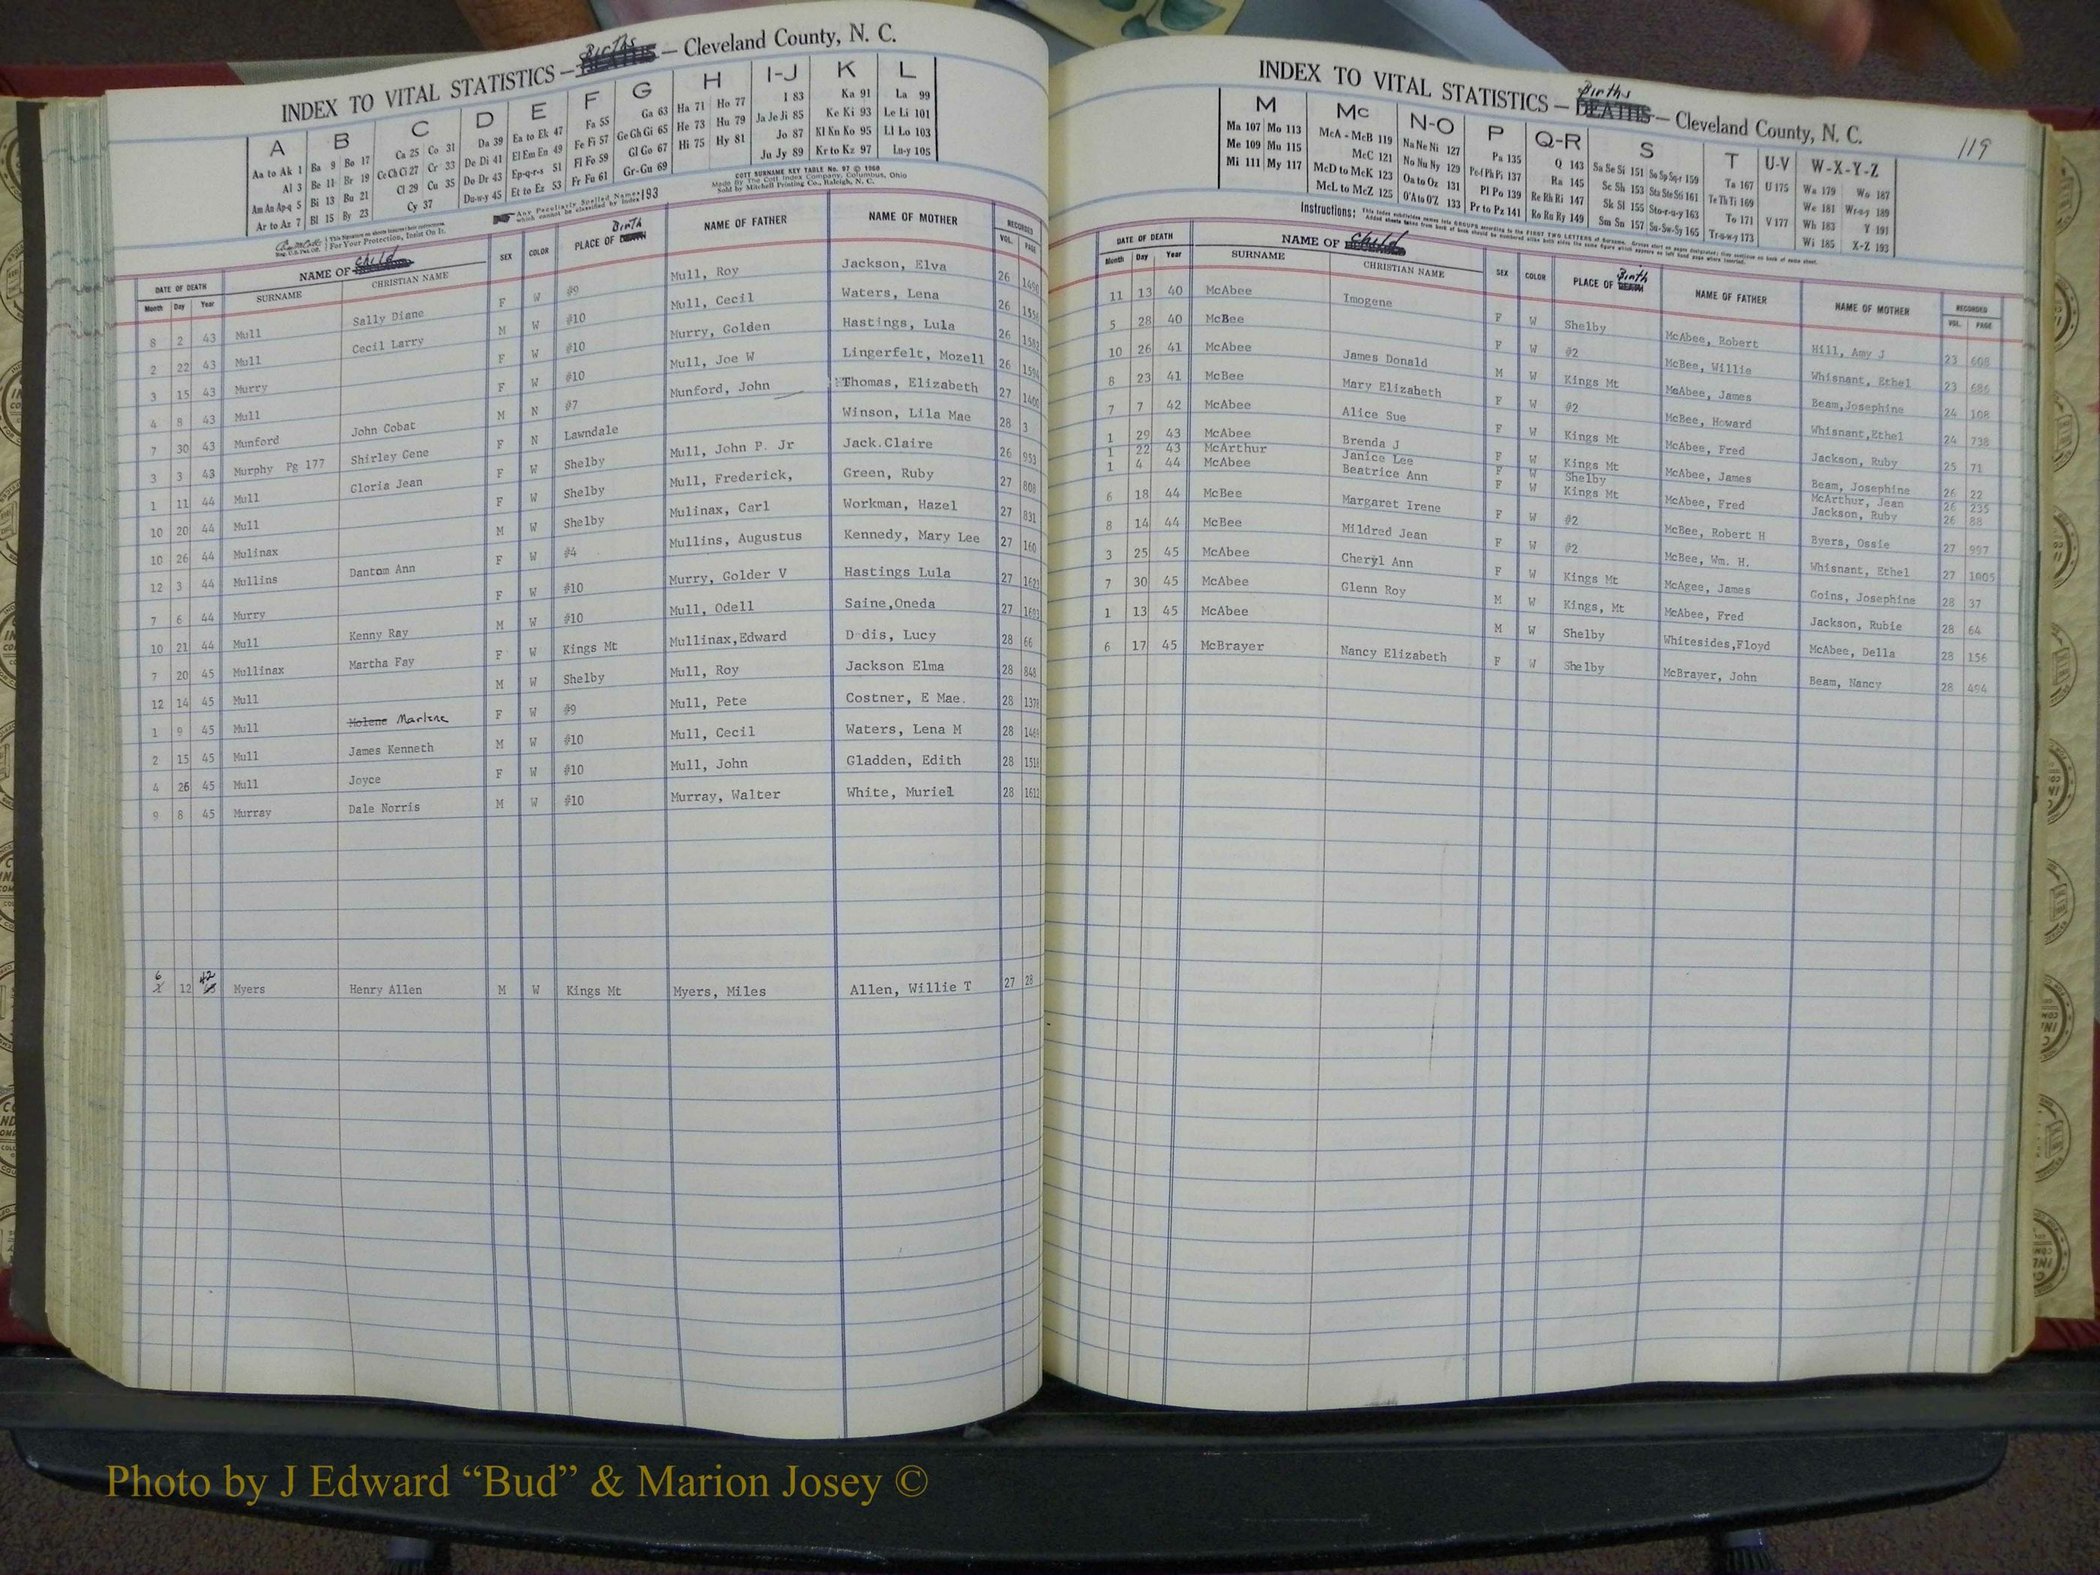 INDEX TO VITAL STATISTICS — Births DEATHS — Cleveland County, N. C.
A B C D E F G H I-J K L
Aa to Ak 1 Ba 9 Bo 17 Ca 25 Co 31 Da 39 Ea to Ek 47 Fa 55 Ga 63 Ha 71 Ho 77 I 83 Ka 91 La 99
Al 3 Be 11 Br 19 Ce Ch Ci 27 Cr 33 De Di 41 El Em En 49 Fe Fi 57 Ge Gh Gi 65 He 73 Hu 79 Ja Je Ji 85 Ke Ki 93 Le Li 101
Am An Ap-q 5 Bi 13 Bu 21 Cl 29 Cu 35 Do Dr 43 Ep-q-r-s 51 Fl Fo 59 Gl Go 67 Hi 75 Hy 81 Jo 87 Kl Kn Ko 95 Ll Lo 103
Ar to Az 7 Bl 15 By 23 Cy 37 Du-w-y 45 Et to Ez 53 Fr Fu 61 Gr-Gu 69 Ju Jy 89 Kr to Kz 97 Lu-y 105
COTT SURNAME KEY TABLE No. 97 © 1960
Made By The Cott Index Company, Columbus, Ohio
Sold by Mitchell Printing Co., Raleigh, N. C.
This Signature on sheets insures their correctness.
For Your Protection, Insist On It.
Any Peculiarly Spelled Names
which cannot be classified by Index 193
DATE OF DEATH NAME OF Child SEX COLOR PLACE OF Birth DEATH NAME OF FATHER NAME OF MOTHER RECORDED
Month Day Year SURNAME CHRISTIAN NAME VOL. PAGE
8 2 43 Mull Sally Diane F W #9 Mull, Roy Jackson, Elva 26 1490
2 22 43 Mull Cecil Larry M W #10 Mull, Cecil Waters, Lena 26 1556
3 15 43 Murry F W #10 Murry, Golden Hastings, Lula 26 1582
4 8 43 Mull F W #10 Mull, Joe W Lingerfelt, Mozell 26 1594
7 30 43 Munford John Cobat M N #7 Munford, John Thomas, Elizabeth 27 1400
3 3 43 Murphy Pg 177 Shirley Gene F N Lawndale Winson, Lila Mae 28 3
1 11 44 Mull Gloria Jean F W Shelby Mull, John P. Jr Jack.Claire 26 953
10 20 44 Mull F W Shelby Mull, Frederick, Green, Ruby 27 808
10 26 44 Mulinax M W Shelby Mulinax, Carl Workman, Hazel 27 831
12 3 44 Mullins Dantom Ann F W #4 Mullins, Augustus Kennedy, Mary Lee 27 160
7 6 44 Murry F W #10 Murry, Golder V Hastings Lula 27 1623
10 21 44 Mull Kenny Ray M W #10 Mull, Odell Saine,Oneda 27 1603
7 20 45 Mullinax Martha Fay F W Kings Mt Mullinax,Edward D dis, Lucy 28 66
12 14 45 Mull M W Shelby Mull, Roy Jackson Elma 28 848
1 9 45 Mull Molene Marlene F W #9 Mull, Pete Costner, E Mae. 28 1378
2 15 45 Mull James Kenneth M W #10 Mull, Cecil Waters, Lena M 28 1469
4 26 45 Mull Joyce F W #10 Mull, John Gladden, Edith 28 1518
9 8 45 Murray Dale Norris M W #10 Murray, Walter White, Muriel 28 1612
6 12 42 Myers Henry Allen M W Kings Mt Myers, Miles Allen, Willie T 27 28
INDEX TO VITAL STATISTICS — Births DEATHS — Cleveland County, N. C.
119
M Mc N-O P Q-R S T U-V W-X-Y-Z
Ma 107 Mo 113 McA - McB 119 Na Ne Ni 127 Pa 135 Q 143 Sa Sc Si 151 So Sp Sq-r 159 Ta 167 U 175 Wa 179 Wo 187
Me 109 Mu 115 McC 121 No Nu Ny 129 Pe-f Ph Pi 137 Ra 145 Se Sh 153 Sta Ste Sti 161 Te Th Ti 169 We 181 Wr-u-y 189
Mi 111 My 117 McD to McK 123 Oa to Oz 131 Pl Po 139 Re Rh Ri 147 Sk Sl 155 Sto-r-u-y 163 To 171 V 177 Wh 183 Y 191
McL to McZ 125 O'A to O'Z 133 Pr to Pz 141 Ro Ru Ry 149 Sm Sn 157 Su-Sw-Sy 165 Tr-u-w-y 173 Wi 185 X-Z 193
Instructions: This index subdivides names into GROUPS according to the FIRST TWO LETTERS of Surname.
DATE OF DEATH NAME OF Child SEX COLOR PLACE OF Birth DEATH NAME OF FATHER NAME OF MOTHER RECORDED
Month Day Year SURNAME CHRISTIAN NAME VOL. PAGE
11 13 40 McAbee Imogene F W Shelby McAbee, Robert Hill, Amy J 23 608
5 28 40 McBee F W #2 McBee, Willie Whisnant, Ethel 23 686
10 26 41 McAbee James Donald M W Kings Mt MaAbee, James Beam,Josephine 24 108
8 23 41 McBee Mary Elizabeth F W #2 McBee, Howard Whisnant,Ethel 24 738
7 7 42 McAbee Alice Sue F W Kings Mt McAbee, Fred Jackson, Ruby 25 71
1 29 43 McAbee Brenda J F W Kings Mt McAbee, James Beam, Josephine 26 22
1 22 43 McArthur Janice Lee F W Shelby McArthur, Jean 26 235
1 4 44 McAbee Beatrice Ann F W Kings Mt McAbee, Fred Jackson, Ruby 26 88
6 18 44 McBee Margaret Irene F W #2 McBee, Robert H Byers, Ossie 27 997
8 14 44 McBee Mildred Jean F W #2 McBee, Wm. H. Whisnant, Ethel 27 1005
3 25 45 McAbee Cheryl Ann F W Kings Mt McAgee, James Goins, Josephine 28 37
7 30 45 McAbee Glenn Roy M W Kings, Mt McAbee, Fred Jackson, Rubie 28 64
1 13 45 McAbee M W Shelby Whitesides,Floyd McAbee, Della 28 156
6 17 45 McBrayer Nancy Elizabeth F W Shelby McBrayer, John Beam, Nancy 28 494
Photo by J Edward “Bud” & Marion Josey ©